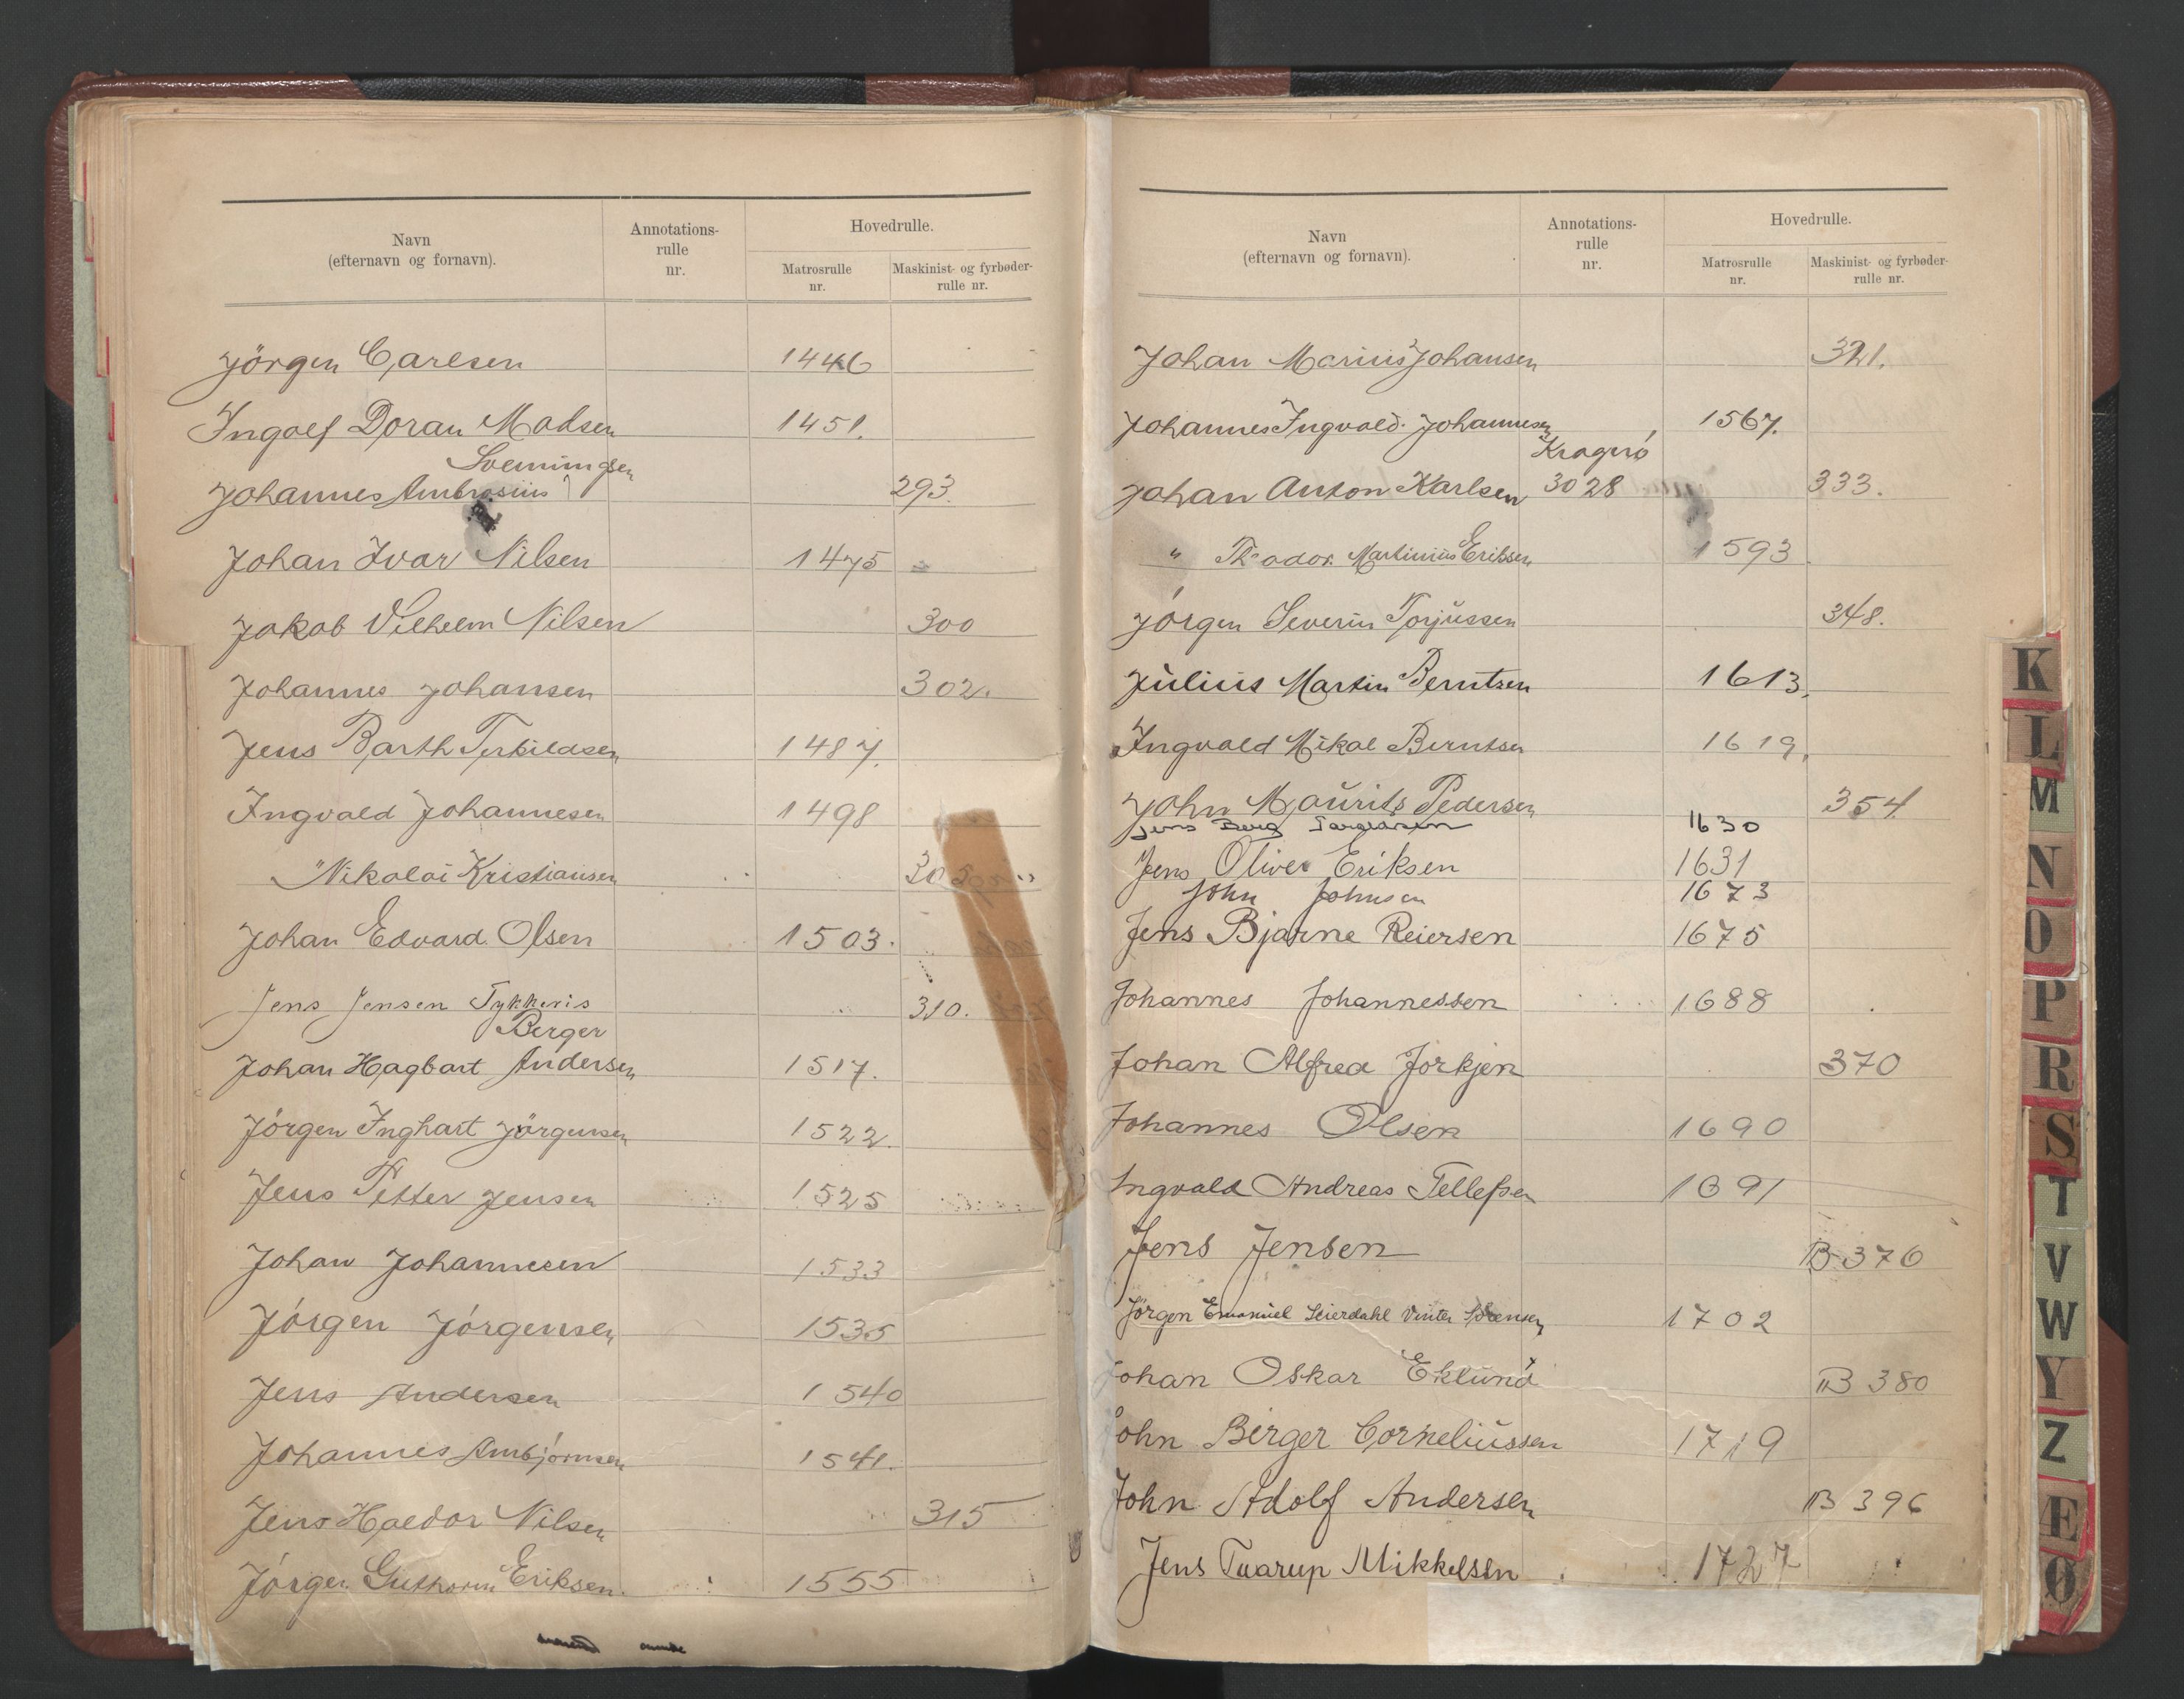 Navn
(efternavn og fornavn).
Annotations-
rulle
nr.
Hovedrulle.
Matrosrulle
nr.
Maskinist- og fyrbøder-
rulle nr.
Jörgen Carlsen 1446
Ingolf Doran Madsen 1451.
Svenningsen
Johannes Ambrosius 293.
Johan Ivar Nilsen 1475
Jakob Vilhelm Nilsen 300
Johannes Johansen 302.
Jens Barth Terkildsen 1487.
Ingvald Johannesen 1498
" Nikolai Kristiansen
Johan Edvard Olsen 1503.
Jens Jensen Tykkeris 310.
Berger
Johan Hagbart Andersen 1517.
Jörgen Inghart Jörgensen 1522.
Jens Petter Jensen 1525
Johan Johannesen 1533
Jórgen Jórgensen 1535
Jens Andersen 1540
Johannes Ambjórnsen 1541.
Jens Haldor Nilsen 315
Jórgen Guthorm Eriksen. 1555
Navn
(efternavn og fornavn).
Annotations-
rulle
nr.
Hovedrulle.
Matrosrulle
nr.
Maskinist- og fyrbøder-
rulle nr.
Johan Marius Johansen 321.
Johannes Ingvald Johannesen 1567.
Kragerö
Johan Anton Karlsen 3028 333.
" Theodor Martinius Eriksen 1593
Jórgen Severin Torjussen 348.
Julius Martin Berntsen 1613.
Ingvald Mikal Berntsen 1619.
John Maurits Pedersen 354.
Jens Berg Torgersen 1630
Jens Oliver Eriksen 1631
John Johnsen 1673
Jens Bjarne Reiersen 1675
Johannes Johannessen 1688
Johan Alfred Jorkjen 370
Johannes Olsen 1690
Ingvald Andreas Tellefsen 1691
Jens Jensen B 376
Jörgen Emanuel Seierdahl Vinter Sörensen 1702
Johan Oskar Eklund B 380
John Birger Corneliussen 1719
John Adolf Andersen B 396
Jens Tvarup Mikkelsen 1727
K
L
M
N
O
P
R
S
T
V
W
Y
Z
Æ
Ø